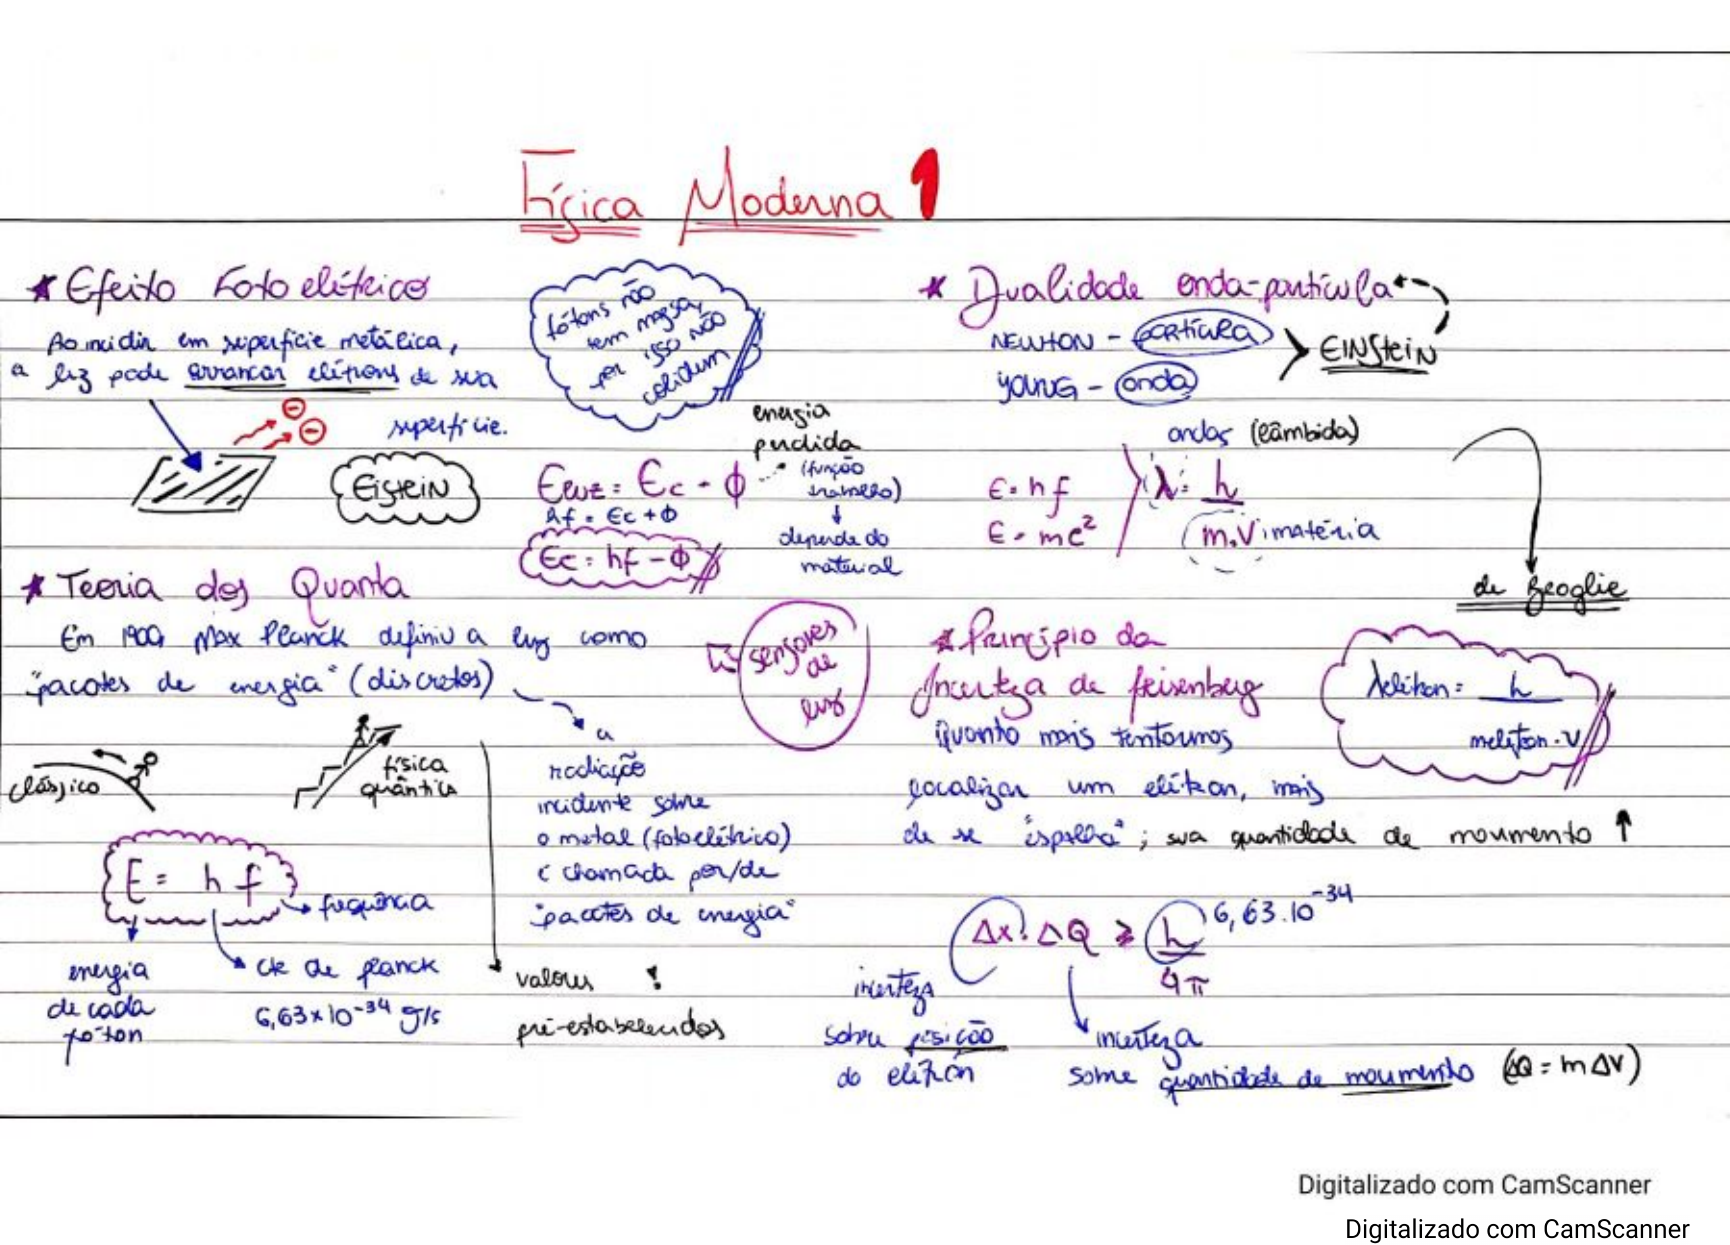 Física Moderna 1
* Efeito Fotoelétrico
Ao incidir em superfície metálica,
a luz pode arrancar elétrons de sua
superfície.
Eistein
fótons não
tem massa,
por isso não
colidem
Eluz = Ec - φ
hf = Ec + φ
Ec = hf - φ
energia
perdida
(função
trabalho)
depende do
material
* Teoria dos Quanta
Em 1900, Max Planck definiu a luz como
"pacotes de energia" (discretos)
sensores
de
luz
clássico
física
quântica
a
radiação
incidente sobre
o metal (fotoelétrico)
é chamada por/de
"pacotes de energia"
E = h f
frequência
energia
de cada
fóton
cte de planck
6,63x10⁻³⁴ J/s
valores !
pré-estabelecidos
* Dualidade onda-partícula
NEWTON - partícula
YOUNG - onda
EINStein
ondas (lâmbida)
E = hf
E = mc²
λ = h
m.V matéria
de Broglie
λelétron = h
melétron . V
* Princípio da
Incerteza de Heisenberg
Quanto mais tentarmos
localizar um elétron, mais
de se "espalha"; sua quantidade de movimento ↑
Δx . ΔQ ≥ h
4π
6,63.10⁻³⁴
incerteza
sobre posição
do elétron
incerteza
sobre quantidade de movimento (ΔQ = m ΔV)
Digitalizado com CamScanner
Digitalizado com CamScanner